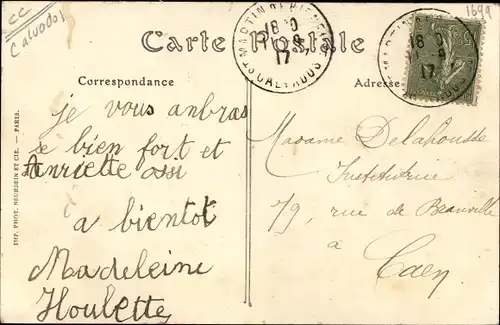 CC
Calvados
1699
Carte Postale
MARTIN DE BIENFAITE
18
17
CALVADOS
18
17
Correspondance
Adresse
je vous anbras
se bien fort et
Anriette ossi
a bientot
Madeleine
Houlette
Madame Delahousse
Institutrice
79, rue de Branville
à
Caen
IMP. PHOT. NEURDEIN ET CIE. — PARIS.